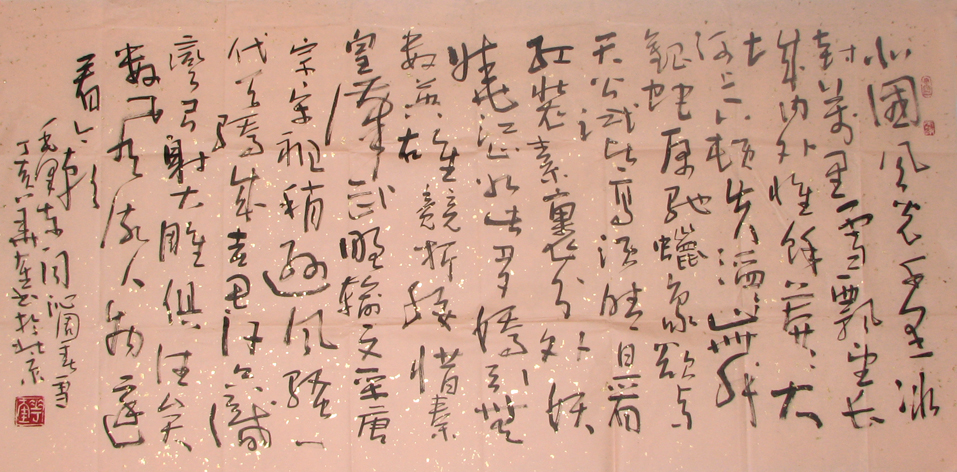 北國风光千里冰
封萬里雪飄望长
城内外惟餘莽〻大
河上下顿失滔〻山舞
银蛇原驰蠟象欲与
天公试比高须晴日看
红装素裹分外妖
娆江山如此多嬌引无
数英雄竞折腰惜秦
皇漢武略输文采唐
宗宋祖稍逊风骚一
代天骄成吉思汗只識
弯弓射大雕俱往矣
数风流人物还
看今朝
毛泽东词沁园春雪
丁亥 書於北京